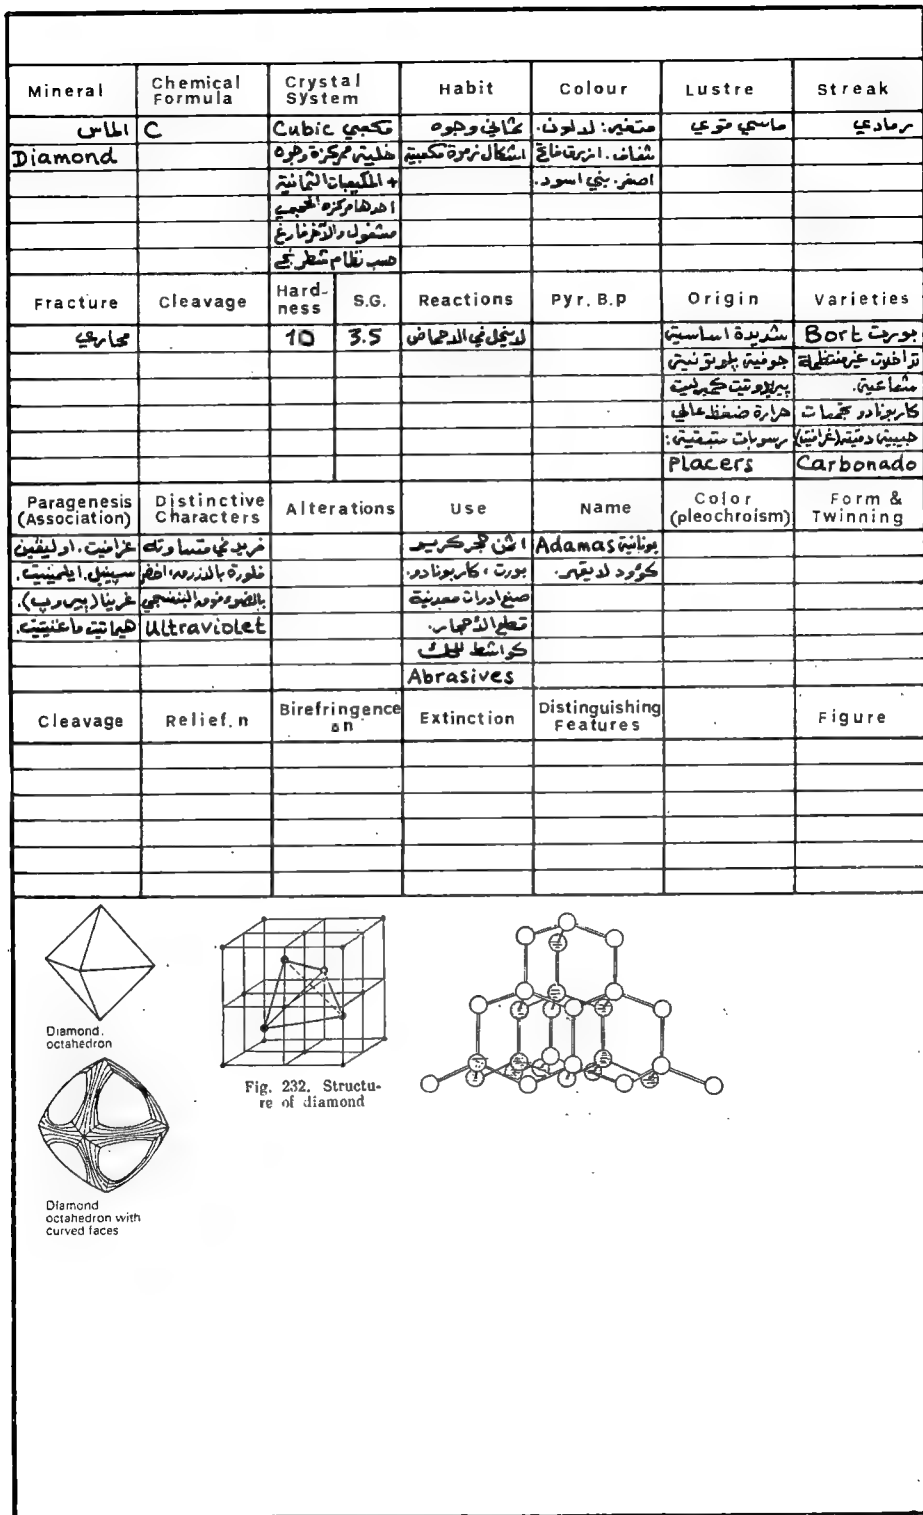 Mineral Chemical Formula Crystal System Habit Colour Lustre Streak
الماس C مكعبي Cubic ثماني وجوه متغير: لالون. ماسي قوي رمادي
Diamond خلية ممركزة وجوه اشكال زمرة مكعبية شفاف. ازرق فاتح
+ المكيعبات الثمانية اصفر. بني اسود.
احدها مركزه الحجمي
مشغول والآخر فارغ
حسب نظام شطرنجي
Fracture Cleavage Hardness S.G. Reactions Pyr. B.p Origin Varieties
محاري 10 3.5 لاينحل في الاحماض شديدة اساسية بورت Bort
جوفية بلوتونية تداخلات غير منتظمة
بيريدوتيت كمبرليت شعاعية.
حرارة ضغط عالي كاربونادو تجمعات
رسوبات متبقية: حبيبية دقيقة (غرافيت)
Placers Carbonado
Paragenesis (Association) Distinctive Characters Alterations Use Name Color (pleochroism) Form & Twinning
غرافيت. اوليفين فريد في قساوته اثمن حجر كريم يونانية Adamas
سبينيل. ايلمينيت. فلورة بالازرق، اخضر بورت، كاربونادو. كؤود لايقهر.
غرينا (بيروب). بالضوء فوق البنفسجي صنع ادوات معدنية
هيماتيت ماغنيتيت. Ultraviolet قطع الأحجار.
كواشط للحك
Abrasives
Cleavage Relief. n Birefringence Δn Extinction Distinguishing Features Figure
Diamond.
octahedron
Fig. 232. Structu-
re of diamond
Diamond
octahedron with
curved faces